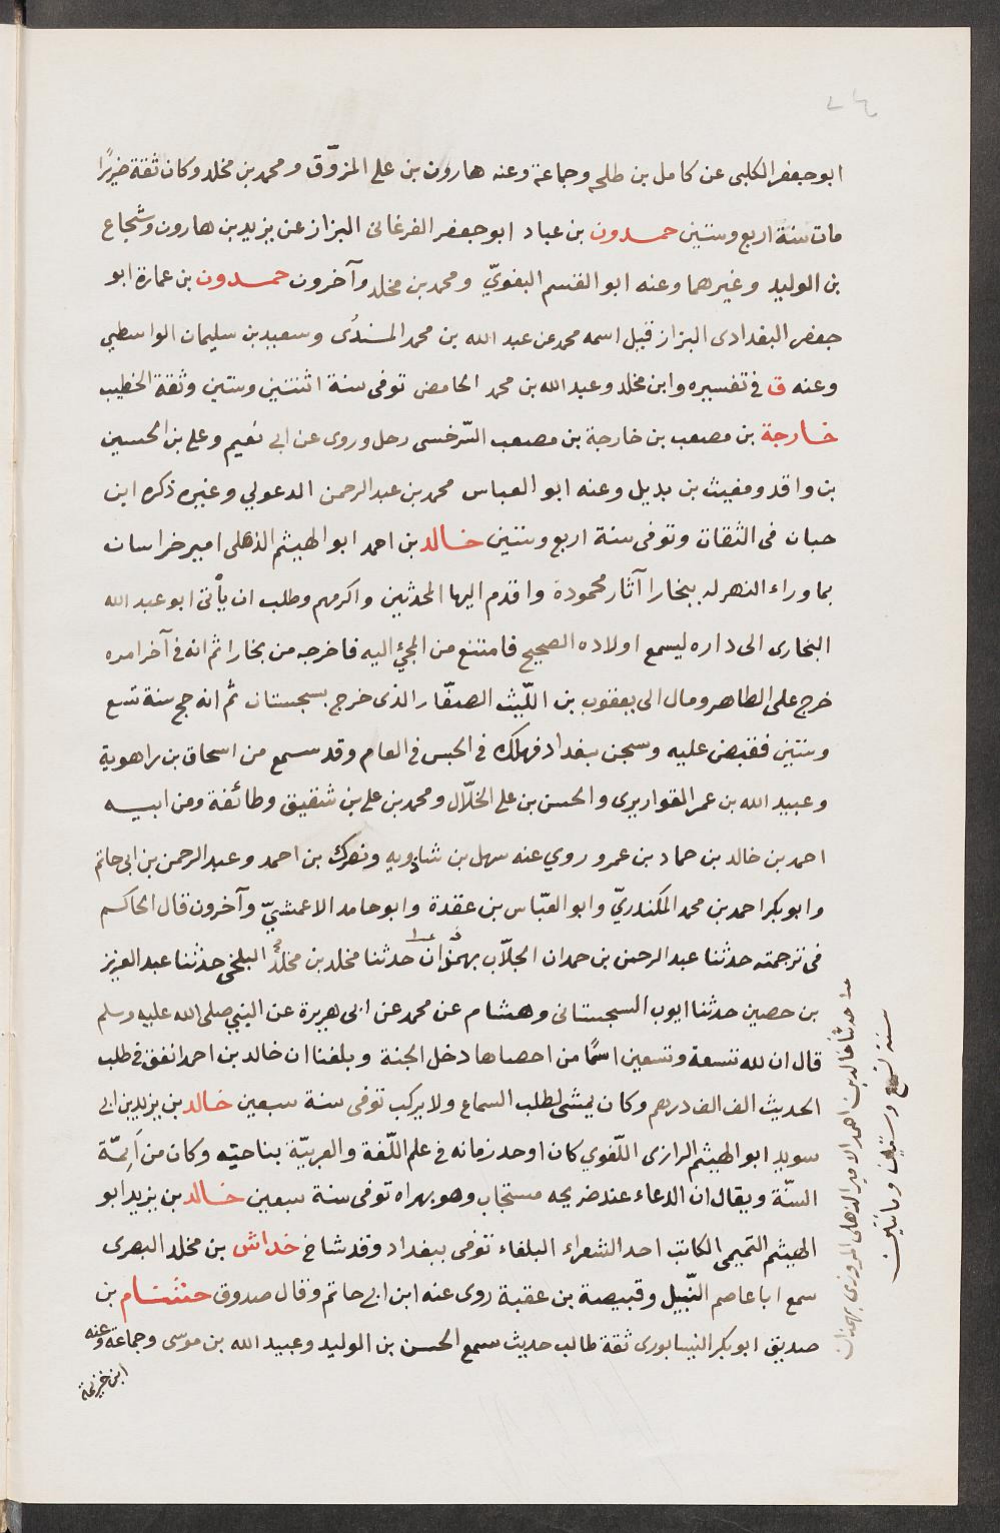 ابو جعفر الكلبى عن كامل بن طلحه وجماعة وعنه هارون بن على المزوّق ومحمد بن مخلد وكان ثقة ضريرًا
مات سنة اربع وستين حمدون بن عباد ابو جعفر الفرغانى البزاز عن يزيد بن هارون وشجاع
بن الوليد وغيرهما وعنه ابو القسم البغويّ ومحمد بن مخلد وآخرون حمدون بن عمارة ابو
جعفر البغدادى البزاز قيل اسمه محمد عن عبد الله بن محمد المسندُى وسعيد بن سليمان الواسطي
وعنه ق فى تفسيره وابن مخلد وعبد الله بن محمد الحامض توفى سنة اثنتين وستين وثقة الخطيب
خارجة بن مصعب بن خارجة بن مصعب السّرخسى رحل وروى عن ابى نعيم وعلى بن الحسين
بن واقد ومغيث بن بديل وعنه ابو العباس محمد بن عبد الرحمن الدعولي وغيره ذكره ابن
حبان فى الثقات وتوفى سنة اربع وستين خالد بن احمد ابو الهيثم الذهلى امير خراسان
بما وراء النهر له ببخارا آثار محمودة واقدم اليها المحدثين واكرمهم وطلب ان يأتى ابو عبد الله
البخارى الى داره ليسمع اولاده الصحيح فامتنع من المجئ اليه فاخرجه من بخارا ثم انه فى آخر امره
خرج على الطاهر ومال الى يعقوب بن اللّيث الصفّار الذى خرج بسجستان ثم انه حج سنة تسع
وستين فقبض عليه وسجن ببغداد فهلك فى الحبس فى العام وقد سمع من اسحاق بن راهوية
وعبيد الله بن عمر القواريرى والحسن بن على الخلّال ومحمد بن على بن شقيق وطائفة ومن ابيه
احمد بن خالد بن حماد بن عمرو روي عنه سهل بن شاذويه ونصرك بن احمد وعبد الرحمن بن ابى حاتم
وابو بكر احمد بن محمد المكندريّ وابو العبّاس بن عقدة وابو حامد الاعمشيّ وآخرون قال الحاكم
فى ترجمته حدثنا عبد الرحمن بن حمدان الجلّاب بهمذان حدثنا مخلد بن مخلد البلخى حدثنا عبد العزيز
بن حصين حدثنا ايوب السجستانى وهشام عن محمد عن ابى هريرة عن النبي صلى الله عليه وسلم
قال ان لله تسعة وتسعين اسمًا من احصاها دخل الجنة وبلغنا ان خالد بن احمد انفق فى طلب
الحديث الف الف درهم وكان يمشى لطلب السماع ولا يركب توفى سنة سبعين خالد بن يزيد بن ابى
سويد ابو الهيثم الرازى اللّغوي كان اوحد زمانه فى علم اللّغة والعربيّة بناحيته وكان من اَيمّة
السنّة ويقال ان الدعاء عند ضريحه مستجاب وهو بهراه توفى سنة سبعين خالد بن يزيد ابو
الهيثم التميمى الكاتب احد الشعراء البلغاء توفى ببغداد وقد شاخ خداش بن مخلد البصرى
سمع ابا عاصم النّبيل وقبيصة بن عقبة روى عنه ابن ابى حاتم وقال صدوق خشنام بن
صديق ابو بكر النيسابورى ثقة طالب حديث سمع الحسن بن الوليد وعبيد الله بن موسى وجماعة وعنه
ابن خزيمة
حدثنا خالد بن احمد الامير الذهلى المروزى بهمذان
سنة تسع وستين ومائتين